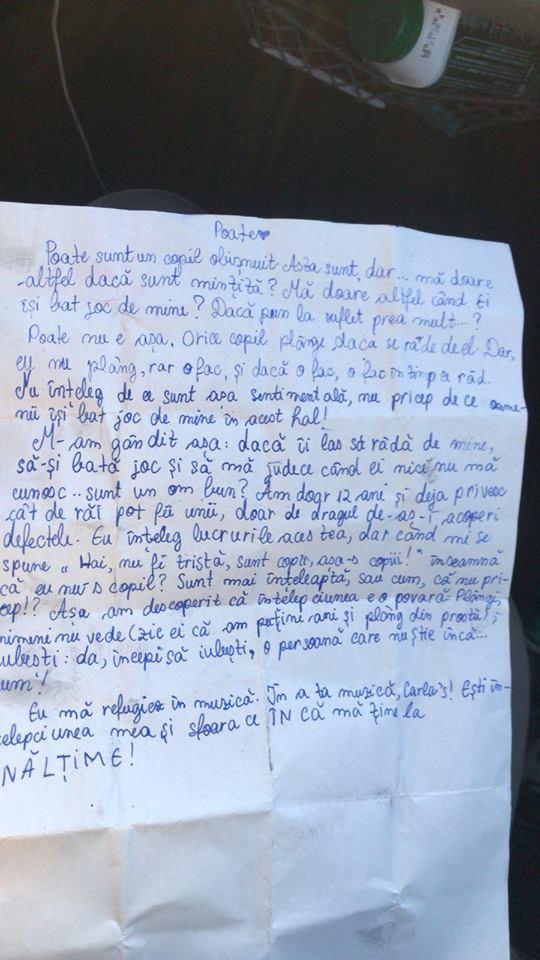 Poate♥
Poate sunt un copil obișnuit Asta sunt, dar... mă doare
-altfel dacă sunt mințită? Mă doare altfel când ei
își bat joc de mine? Dacă pun la suflet prea mult...?
Poate nu e așa. Orice copil plânge dacă se râde de el. Dar,
eu nu plâng, rar o fac, și dacă o fac, o fac în timp ce râd.
Nu înțeleg de ce sunt așa sentimentală, nu pricep de ce oame-
nii își bat joc de mine în acest hal!
M-am gândit așa: dacă îi las să râdă de mine,
să-și bată joc și să mă judece când ei nici nu mă
cunosc.. sunt un om bun? Am doar 12 ani și deja privesc
cât de răi pot fi unii, doar de dragul de-aș-i acoperi
defectele. Eu înțeleg lucrurile acestea, dar când mi se
spune „Hai, nu fi tristă, sunt copii, așa-s copiii!" înseamnă
că eu nu's copil? Sunt mai înțeleaptă, sau cum, că nu pri-
cep!? Așa am descoperit că înțelepciunea e o povară Plângi,
nimeni nu vede (zic ei că am puțini ani și plâng din prostii);
iubești: da, începi să iubești, o persoană care nu știe încă...
cum!
Eu mă refugiez în muzică. În a ta muzică, Carla's! Ești în-
țelepciunea mea și sfoara ce ÎNCĂ mă ține la
ÎNĂLȚIME!